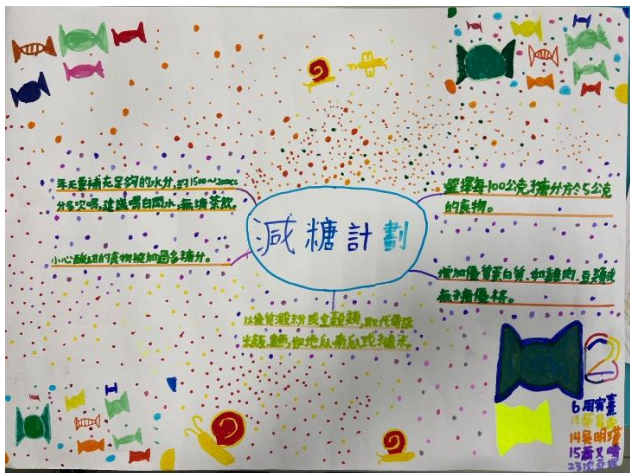 減糖計劃
每天要補充足夠的水分,約1500~2000cc
分多次喝,建議喝白開水,無糖茶飲。
小心酸甜的食物被加過多糖分。
選擇每100公克糖分於5公克
的食物。
增加優質蛋白質,如雞肉,豆漿或
無糖優格。
以優質澱粉或全穀類,取代
,如地瓜南瓜或糙米
2
6周宥熹
13
14吳明瑾
15蕭又晴
23沈